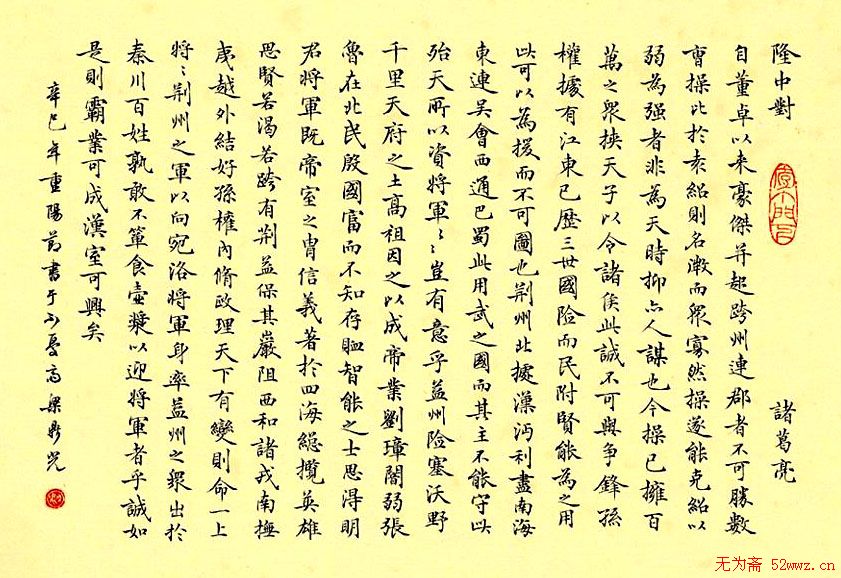 隆中對 諸葛亮
自董卓以来豪傑并起跨州連郡者不可勝數
曹操比於袁紹則名微而眾寡然操遂能克紹以
弱為强者非為天時抑亦人謀也今操已擁百
萬之眾挾天子以令諸侯此誠不可與争鋒孫
權據有江東已歷三世國险而民附賢能為之用
此可以為援而不可圖也荆州北據漢沔利盡南海
東連吴會西通巴蜀此用武之國而其主不能守此
殆天所以資將軍〻〻豈有意乎益州险塞沃野
千里天府之土高祖因之以成帝業劉璋闇弱張
魯在北民殷國富而不知存恤智能之士思得明
君將軍既帝室之胄信義著於四海緫攬英雄
思賢若渴若跨有荆益保其巖阻西和諸戎南撫
夷越外结好孫權内脩政理天下有變則命一上
將〻荆州之軍以向宛洛將軍身率益州之眾出於
秦川百姓孰敢不箪食壺漿以迎將軍者乎誠如
是則霸業可成漢室可興矣
辛巳年重陽节書于 高梁
无为斋 52wwz.cn